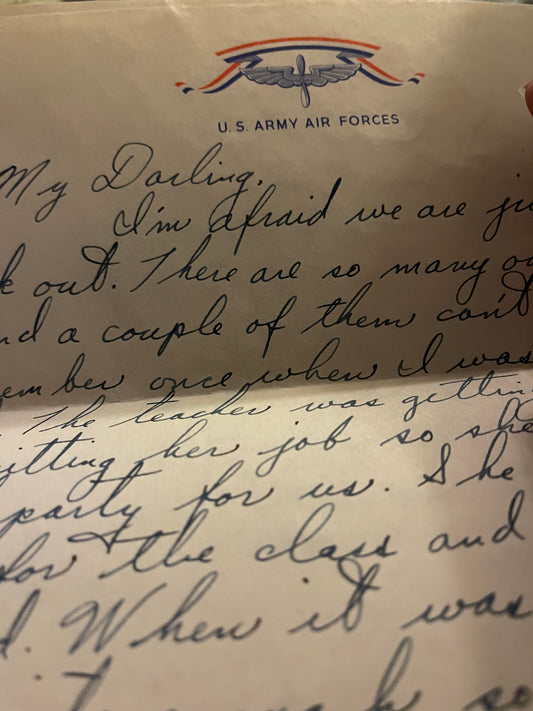 U.S. ARMY AIR FORCES
My Darling,
I'm afraid we are
out. There are so many
a couple of them can't
once when I was
The teacher was getting
her job so she
party for us. She
for the class and
When it was
so